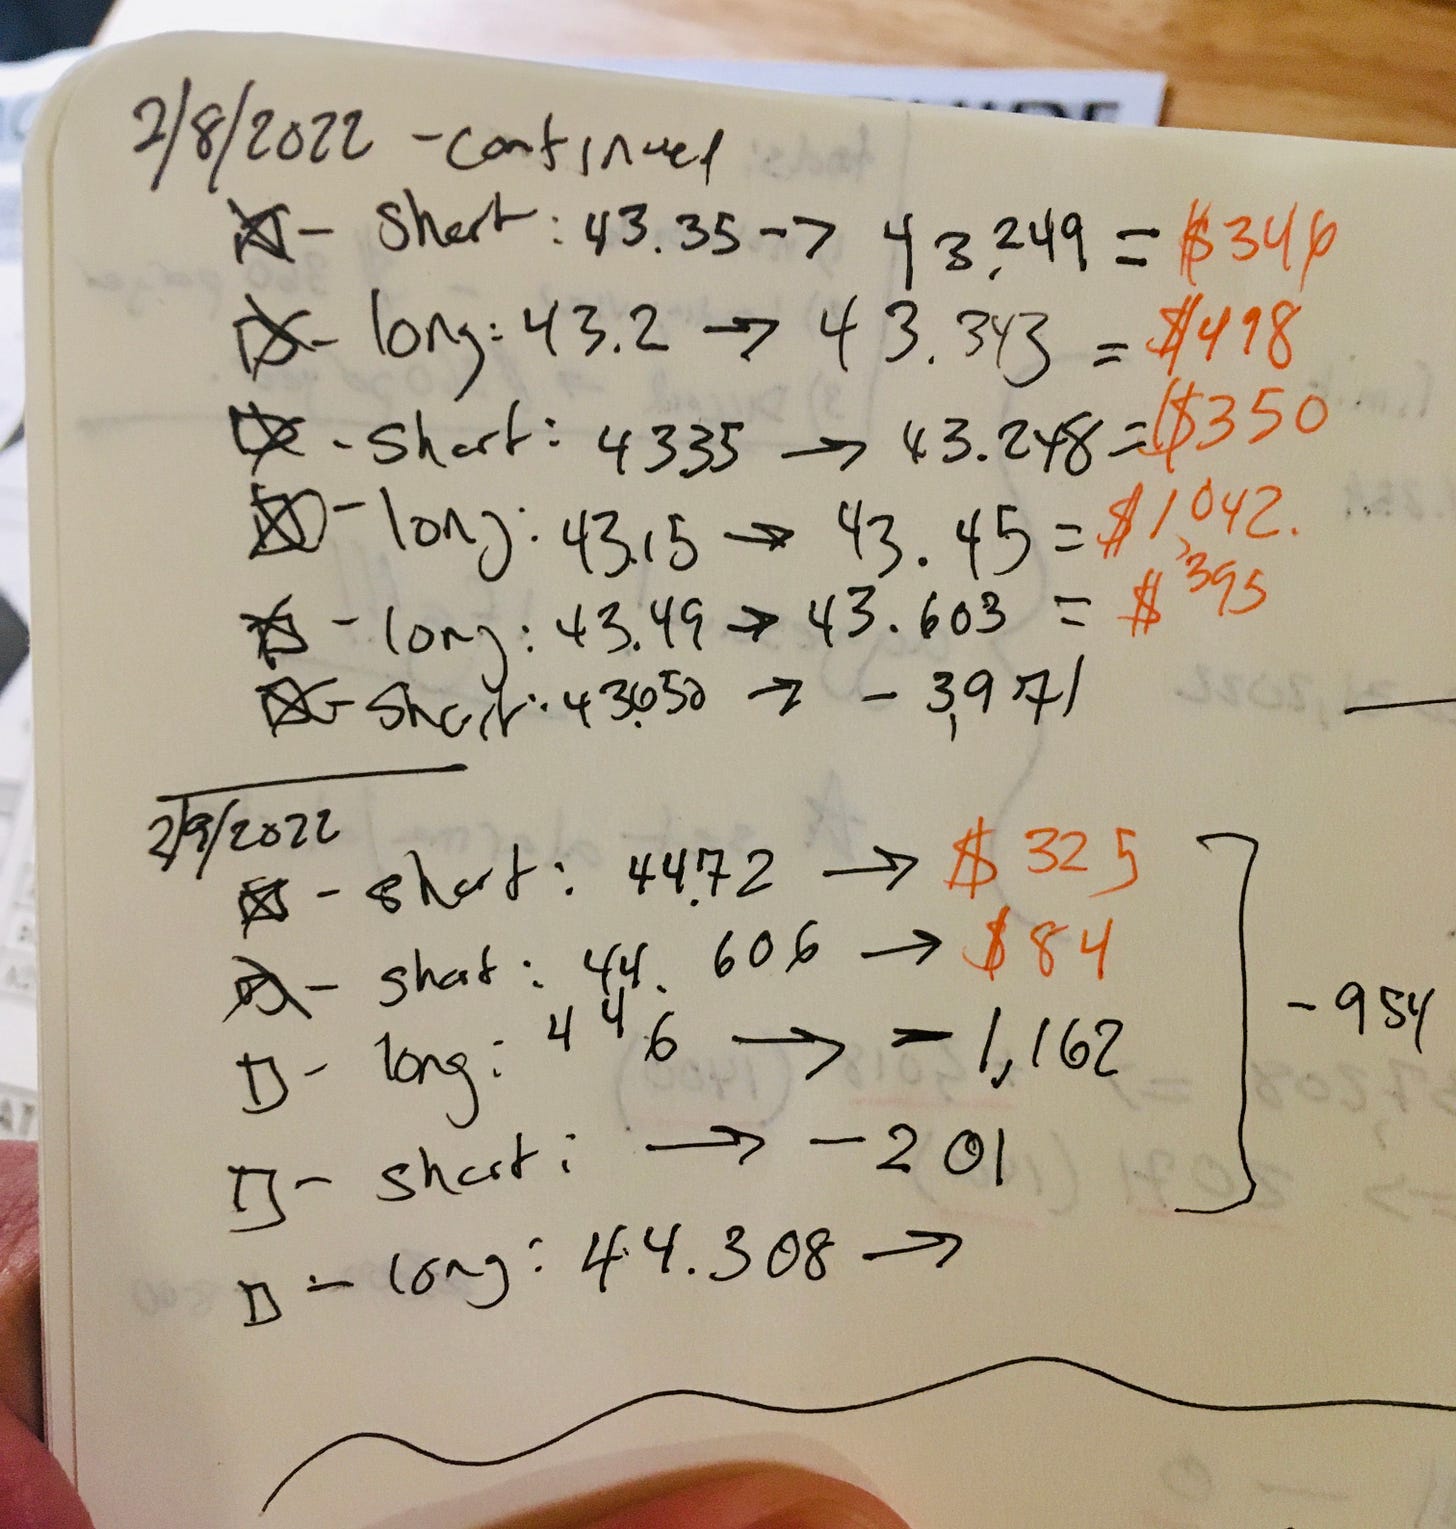 2/8/2022 - continued
- short: 43.35 -> 43,249 = $346
- long: 43.2 -> 43.343 = $498
- short: 43.35 -> 43.248 = $350
- long: 43.15 -> 43.45 = $1,042.
- long: 43.49 -> 43.603 = $395
- short: 43.650 -> - 3,971
2/9/2022
- short: 44.72 -> $325
- short: 44.606 -> $84
- long: 44.6 -> - 1,162
- short: -> - 201
-954
- long: 44.308 ->